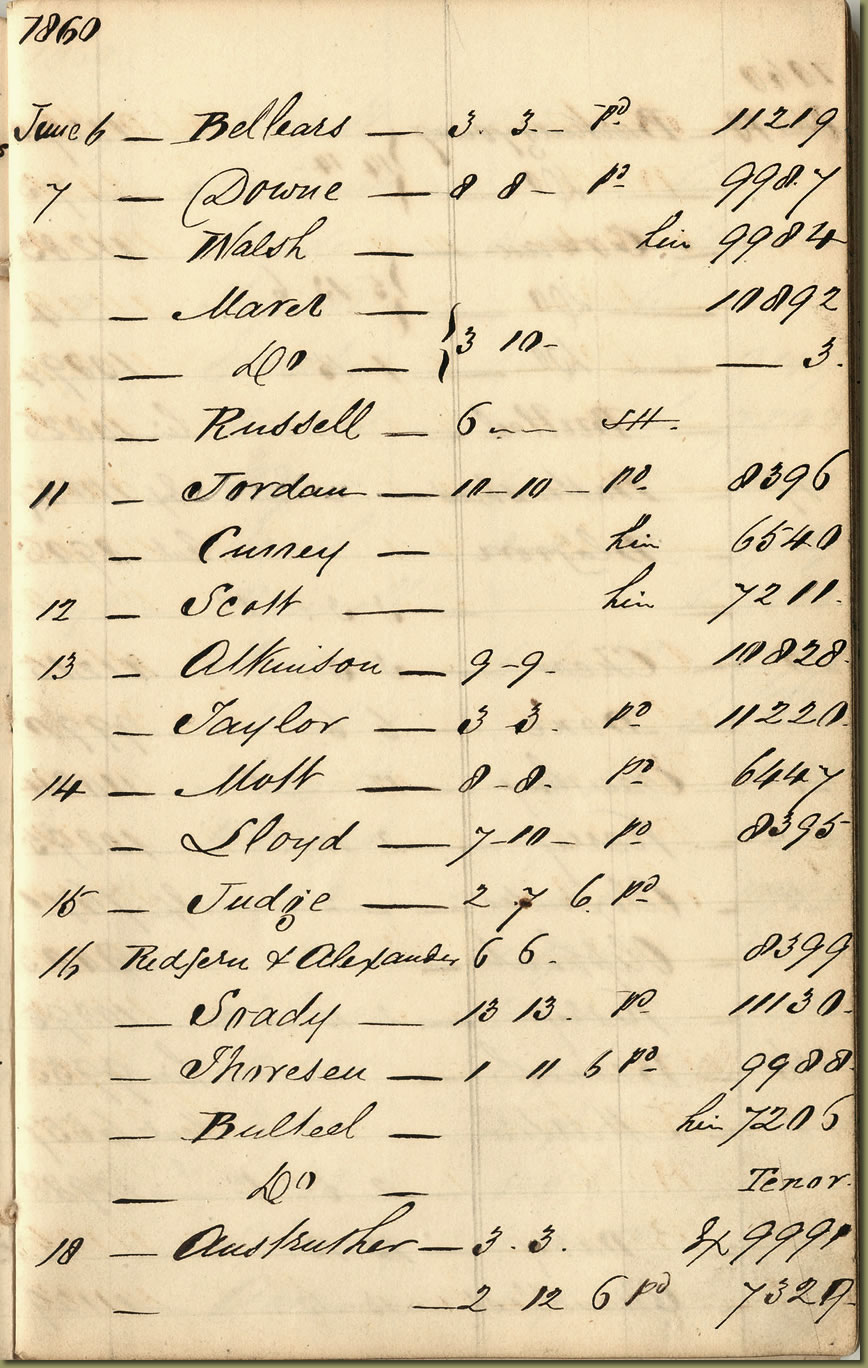 1860
June 6 — Bellears — 3. 3. — pd. 11219
7 — Downe — 8 8 — pd 9987
— Walsh — hin 9984
— Maret — 10892
— Do — } 3 10 - — 3.
— Russell — 6 - -
11 — Jordan — 10 - 10 - pd. 8396
— Currey — hin 6540
12 — Scott — hin 7211.
13 — Atkinson — 9 - 9. 10828.
— Taylor — 3 3. pd 11220.
14 — Mott — 8 - 8. pd 6447
— Lloyd — 7 - 10 - pd 8395
15 — Judge — 2 7 6. pd
16 Redfern & Alexander 6 6. 8399
— Soady — 13 13. pd 11130.
— Thoresen — 1 11 6 pd 9988.
— Bulteel — hin 7206
— Do — Tenor.
18 — Anstruther — 3. 3. 9991
— — 2 12 6 pd